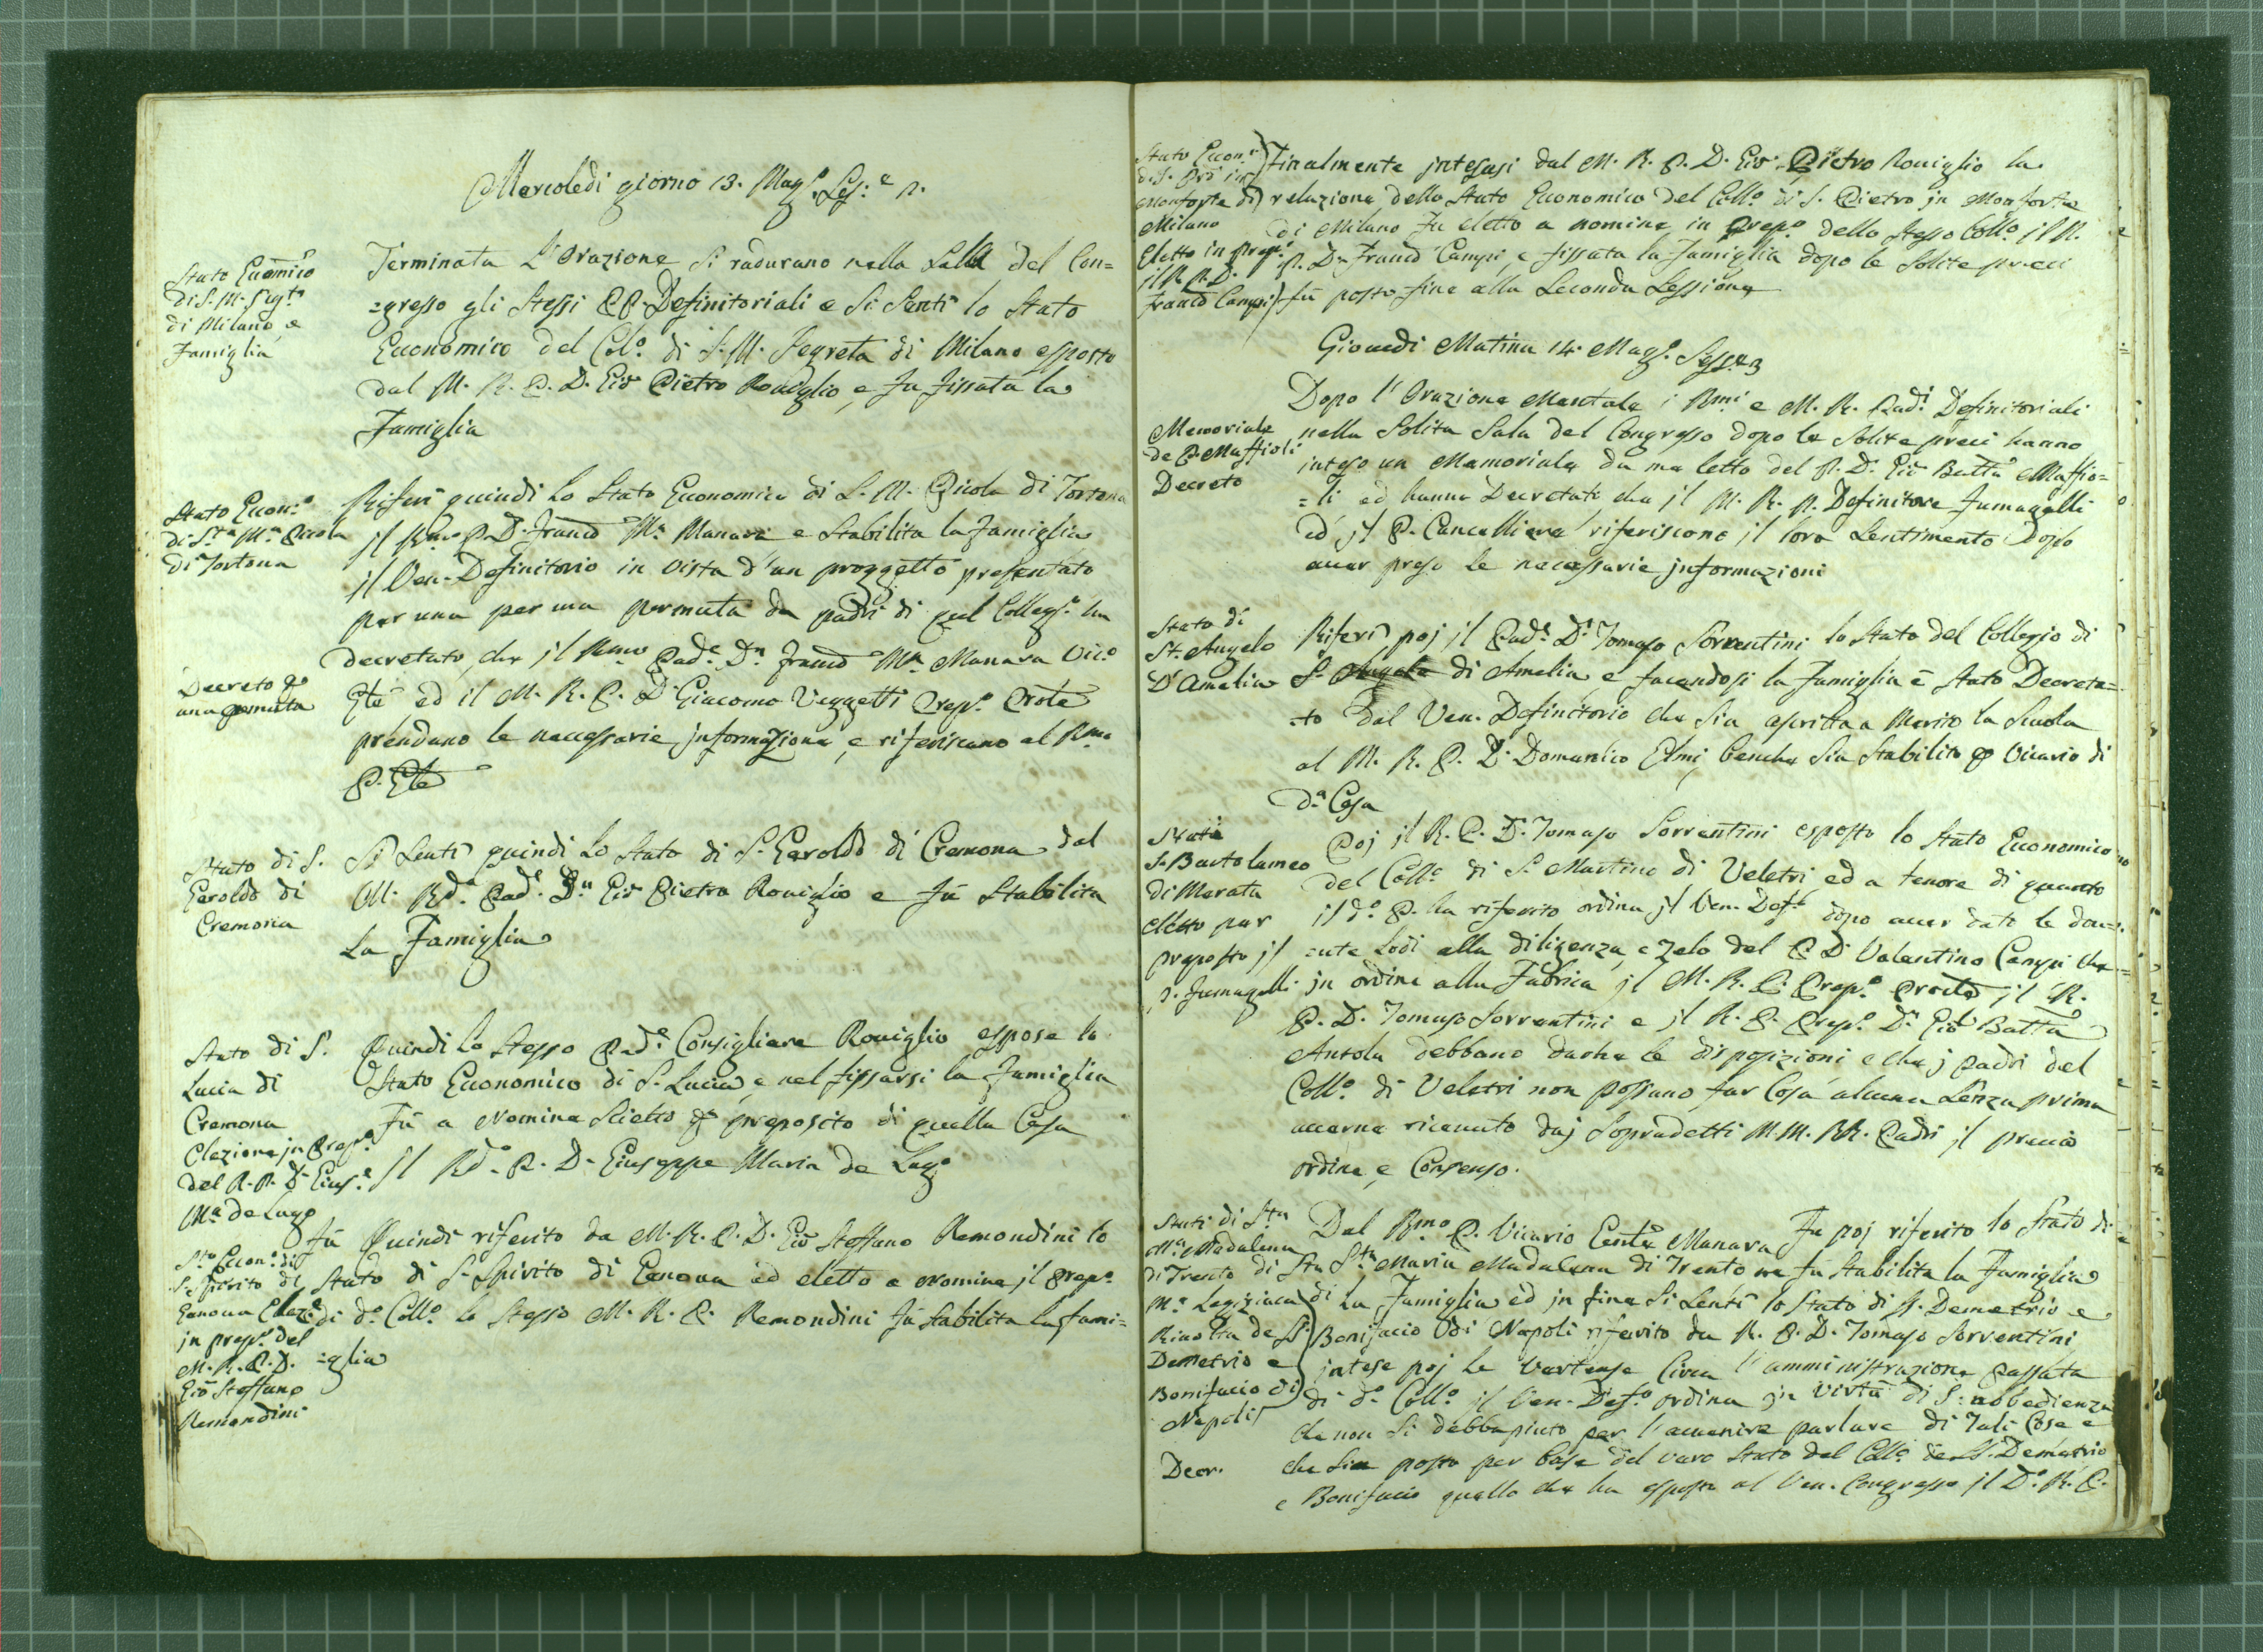 Mercoledi giorno 13. Magg.º Ses.e 2.
Stato Euomico
di S. M. Sigta
di Milano, e
Famiglia
Terminata L'Orazione si radurano nella Sala del Con=
=gresso gli Stessi PP. Definitoriali e si Sentì lo Stato
Economico del Colº. di S. M. Segreta di Milano esposto
dal M. R. P. D. Gio Pietro Roviglio, e fu fissata la
Famiglia
Stato Econ.º
di Sta Ma Picola
di Tortona
Riferì quindi lo Stato Economico di S. M. Picola di Tortona
jl Rmo P. D. Francº Mª Manara e Stabilita la Famiglia
jl Ven. Definitorio in vista d'un proggetto presentato
per una per una permuta da padri di quel Collegº. ha
decretato, che jl Rmo Pade. Dn Francº Mª Manara Vicº
Decreto po
una pemuta
Gle ed il M. R. P. D. Giacomo Vezzetti Prepº. Prole
prendano le necessarie jnformazione, e riferiscano al Rmo
P. Gle
Stato di S.
Geroldo di
Cremona
Si Sentì quindi Lo Stato di S. Geroldo di Cremona dal
M. Rdº Pade. Dn Gio Pietro Roviglio e fù Stabilita
La Famiglia
Stato di S.
Lucia di
Cremona
Elezione jn Prepº
del R. P. D. Gius.e
Mª de Lugo
Quindi Lo Stesso Pade. Consigliere Roviglio espose lo
Stato Economico di S. Lucia, e nel fissarsi la Famiglia
Fù a Nomina Scietto po preposito di quella Casa
Il Rdº. P. D. Giuseppe Maria de Lugº
Sto Econº. di
S. Spirito di
Genova Elez.e
jn prepº. del
M. R. P. D.
Gio Steffano
Remondini
Fù Quindi riferito da M. R. P. D. Gio Steffano Remondini lo
Stato di S. Spirito di Genova ed eletto a Nomina jl Prepº
di dº Collº. lo Stesso M. R. P. Remondini fù Stabilita la fami=
=glia
Stato Econ.º
di S. Pº in
Monforte di
Milano
Eletto in Prepº.
jl R. P. D.
Francº Campi
Finalmente jntesasi dal M. R. P. D. Gio. Pietro Roviglio la
relazione dello Stato Economico del Collº di S. Pietro jn Monforte
di Milano fu eletto a nomina in Prepº dello Stesso Collº jl R.
P. Dn Francº Campi, e fissata la Famiglia dopo le Solite preci
fù posto fine alla Seconda Sessione
Giovedi Matina 14. Maggº. Sess.e 3
Memoriale
de P. Maffioli
Decreto
Dopo l'Orazione Mentale i Rmi e M. R. Padi Definitoriali
nella Solita Sala del Congresso dopo le Solite preci hanno
inteso un Memoriale da me letto del P. D. Gio Batta Maffio=
=li ed hanno Decretato che jl M. R. P. Definitore Fumagalli
ed jl P. Cancelliere riferiscono jl loro Sentimento dopo
aver preso le necessarie jnformazioni
Stato di
St. Angelo
D'Amelia
Riferì poj jl Pade. Dn Tomaso Sorrentini lo Stato del Collegio di
S. Angelo di Amelia, e facendosi la Famiglia è Stato Decreta=
=to dal Ven. Definitorio che Sia ascritta a Merito la Scuola
al M. R. P. D. Domenico Elmi, benche Sia Stabilito po Vicario di
dª Casa
Stati
S. Bartolameo
di Merate
eletto per
preposto jl
P. Fumagalli
Poj jl R. P. D. Tomaso Sorrentini esposto lo Stato Economico
del Collº di S. Martino di Veletri, ed a tenore di quanto
jl dº. P. ha riferito ordina jl Ven. Defº dopo aver dato le dov=
=ute Lodi alla diligenza, e zelo del P. D. Valentino Campi che
jn ordine alla Fabrica jl M. R. P. Prepº Prole jl R.
P. D. Tomaso Sorrentini e jl R. P. Prepº. Dn Gio Batta
Ansola debbano darne le disposizioni e che j Padri del
Collº di Veletri non possano far Cosa alcuna Senza prima
averne ricevuto daj Sopradetti M. M. RR. Padri jl previo
ordine, e Consenso.
Stati di Sta
Ma Madalena
di Trento di Sta
Ma
di
Rivolta de SS
Demetrio e
Bonifacio di
Napoli
Decr.
Dal Rmo P. Vicario Genle Manara Fu poj riferito lo Stato di
Sta Maria Madalena di Trento ne fù Stabilita la Famiglia
La Famiglia ed jn fine Si Sentì lo Stato di SS. Demetrio e
Bonifacio di Napoli riferito da R. P. D. Tomaso Sorrentini
jntese poj le vertenze Circa l'amministrazione passata
di dº Collº jl Ven. Defº ordina jn virtù di S. obbedienza
che non Si debba piuto per l'avvenire parlare di Tali Cose e
che Sia posto per base del vero Stato del Collº de SS. Demetrio
e Bonifacio quello che ha esposto al Ven. Congresso jl Dº. R. P.